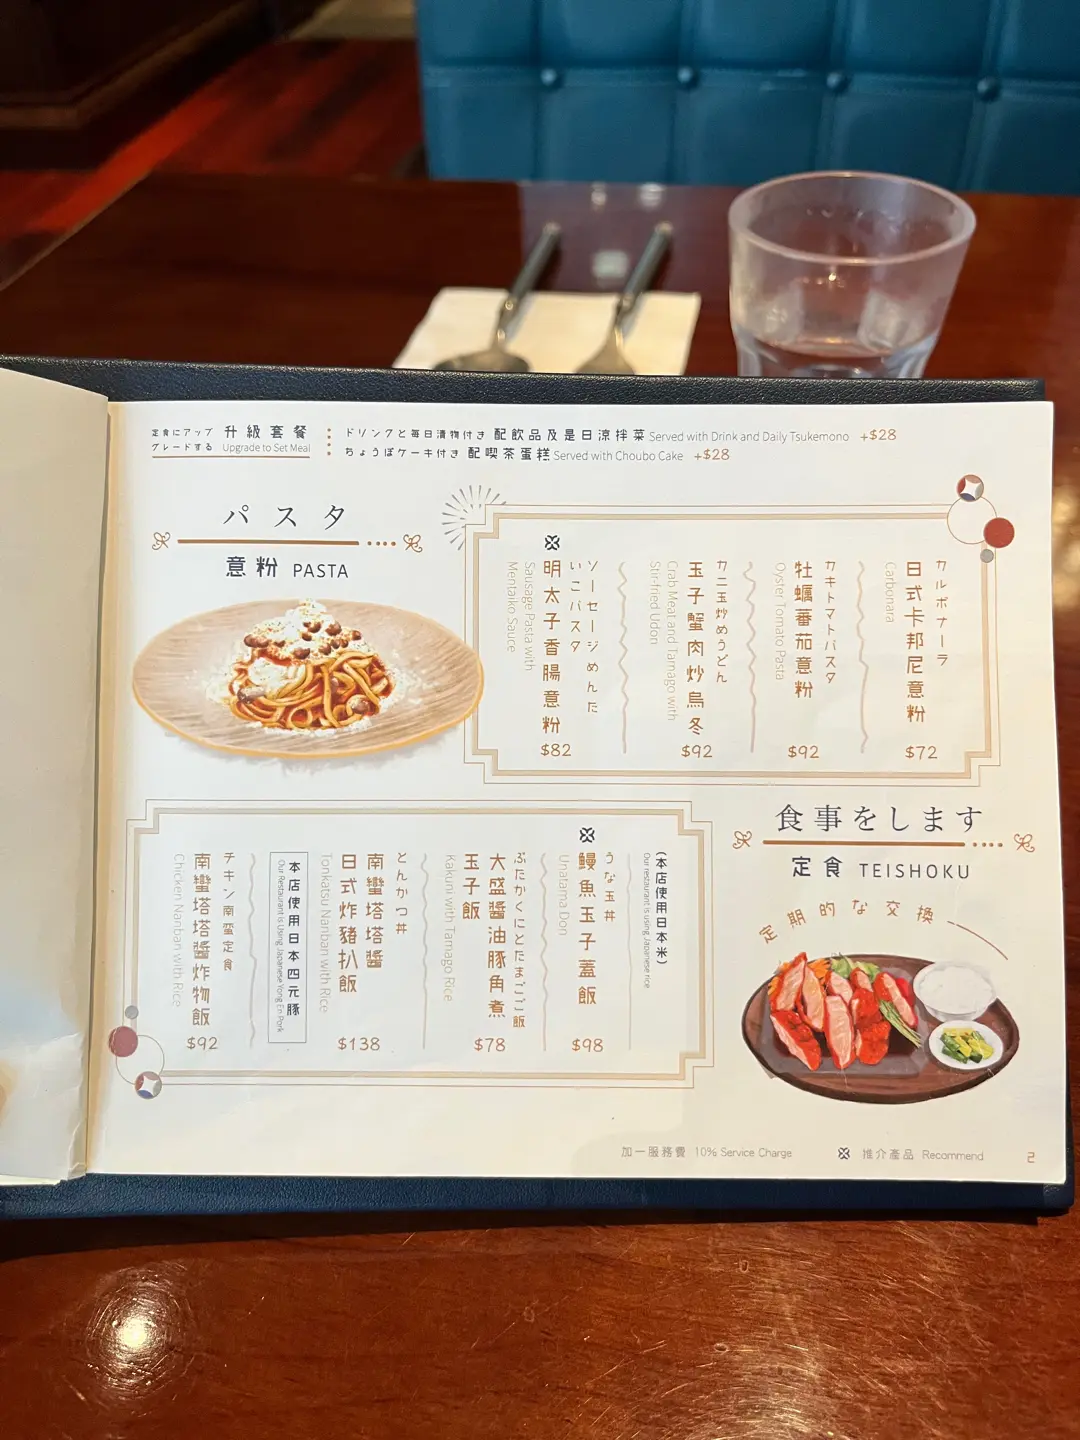 定食にアップ
グレードする
升級套餐
Upgrade to Set Meal
ドリンクと毎日漬物付き 配飲品及是日涼拌菜 Served with Drink and Daily Tsukemono +$28
ちょうぼケーキ付き 配喫茶蛋糕 Served with Choubo Cake +$28
パスタ
意粉 PASTA
カルボナーラ
日式卡邦尼意粉
Carbonara
$72
カキトマトパスタ
牡蠣蕃茄意粉
Oyster Tomato Pasta
$92
カニ玉炒めうどん
玉子蟹肉炒烏冬
Crab Meat and Tamago with
Stir-fried Udon
$92
ソーセージめんた
いこパスタ
明太子香腸意粉
Sausage Pasta with
Mentaiko Sauce
$82
食事をします
定食 TEISHOKU
定期的な交換
(本店使用日本米)
Our restaurant is using Japanese rice
うな玉丼
鰻魚玉子蓋飯
Unatama Don
$98
ぶたかくにとたまごご飯
大盛醬油豚角煮
玉子飯
Kakuni with Tamago Rice
$78
とんかつ丼
南蠻塔塔醬
日式炸豬扒飯
Tonkatsu Nanban with Rice
$138
本店使用日本四元豚
Our Restaurant is Using Japanese Yong En Pork
チキン南蛮定食
南蠻塔塔醬炸物飯
Chicken Nanban with Rice
$92
加一服務費 10% Service Charge
推介產品 Recommend
2